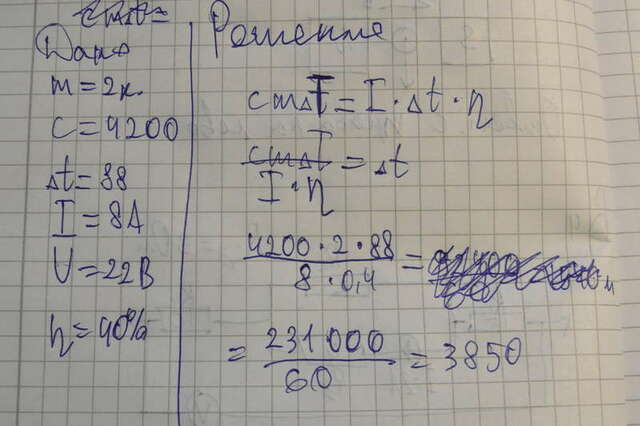 Дано
m = 2к.
c = 4200
Δt = 88
I = 8A
U = 22B
η = 40%
Решение
cmΔT = I · Δt · η
cmΔT / I · η = Δt
4200 · 2 · 88 / 8 · 0,4 =
= 231 000 / 60 = 3850